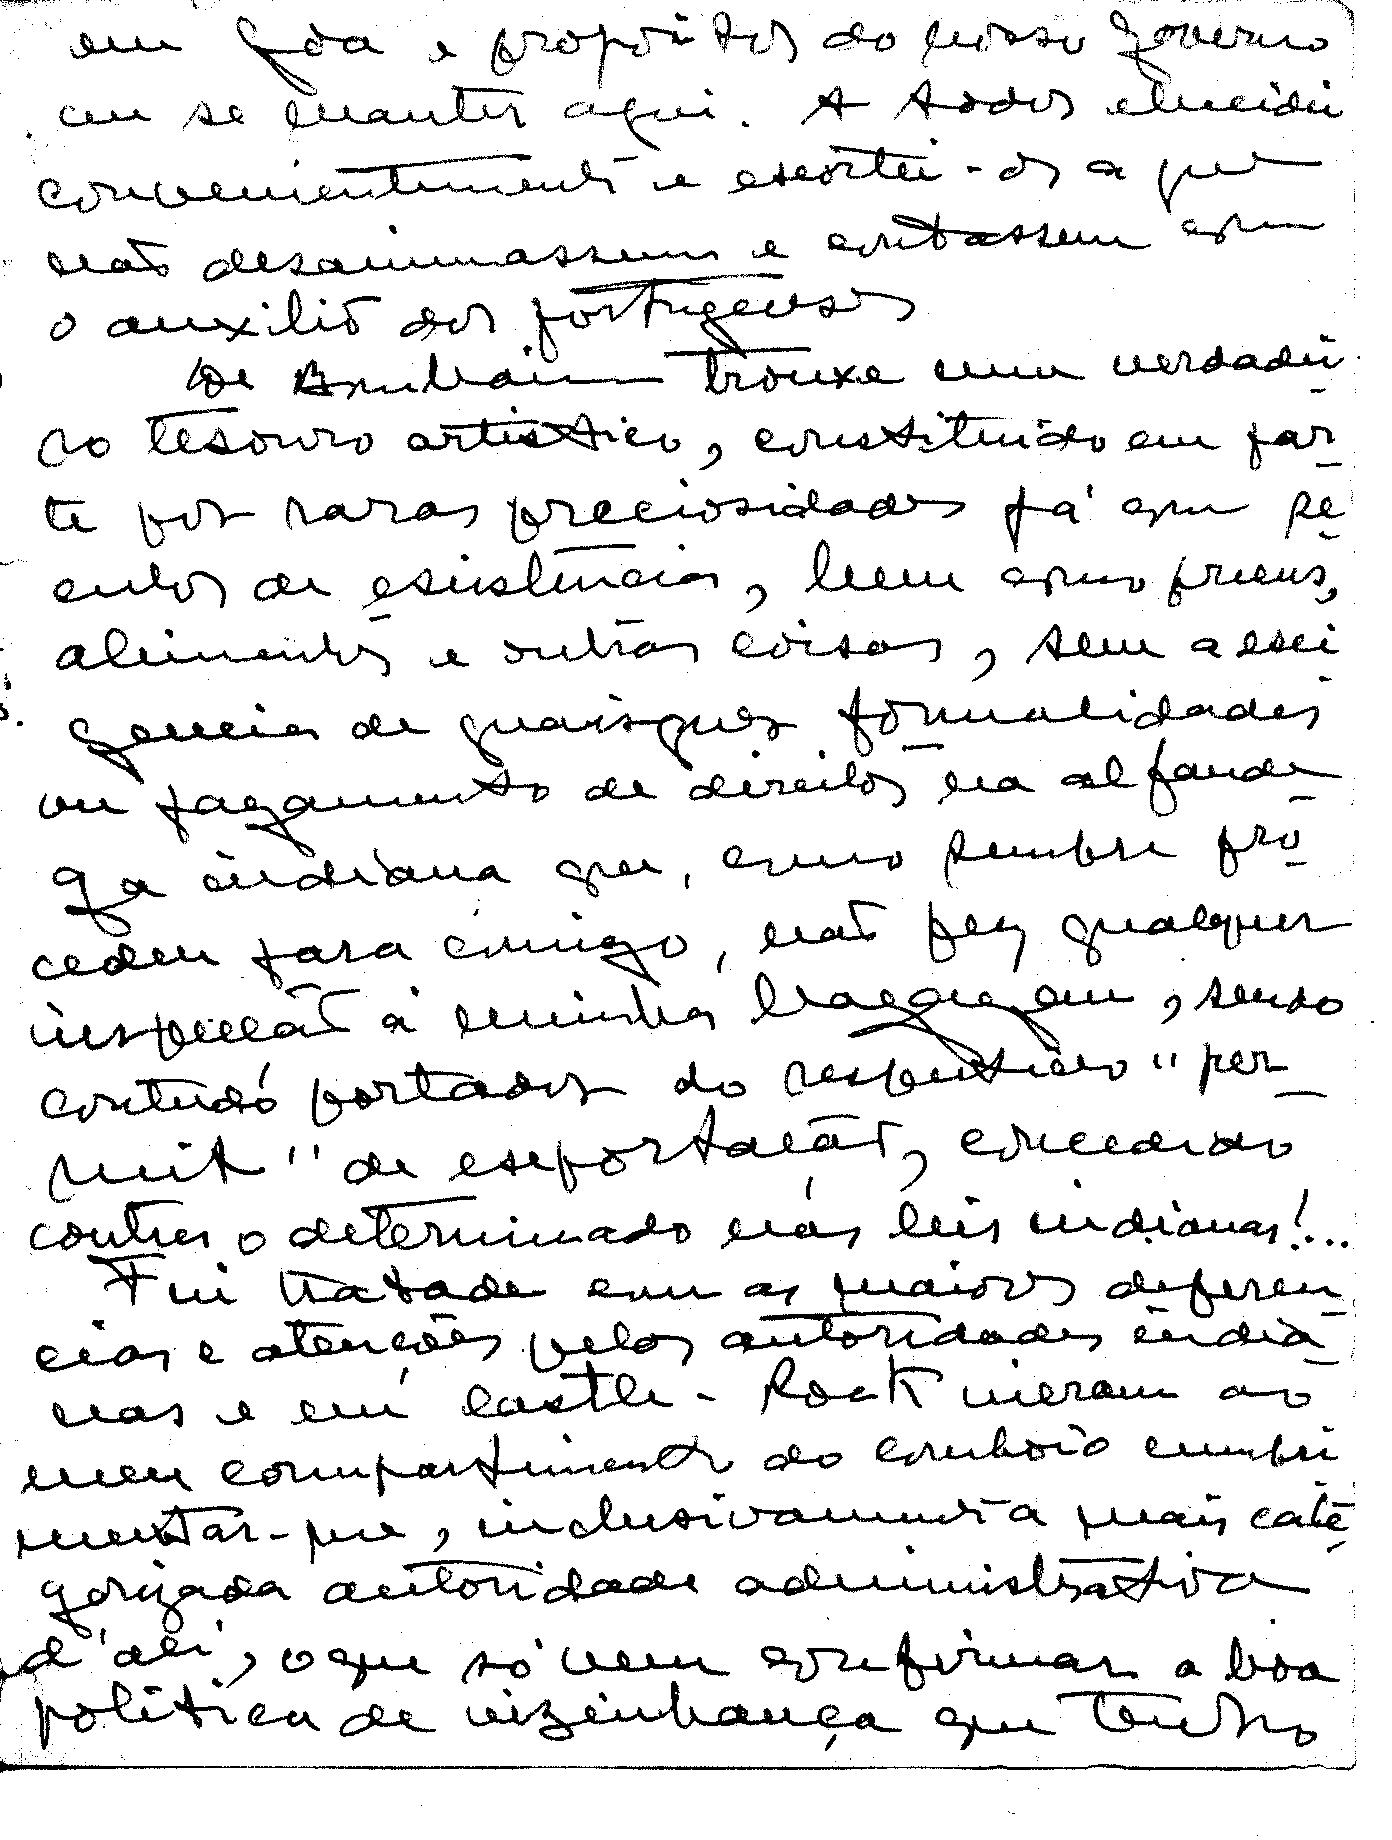 em Goa e propósitos do nosso Governo
em se manter aqui. A todos elucidei
convenientemente e esortei-os a que
não desanimassem e contassem com
o auxilio dos portugueses
De Bombaim trouxe um verdadei
ro tesouro artistico, constituido em par-
te por raras preciosidades já com se
culos de esistencia, bem como pneus,
alimentos e outras coisas, sem a esi
gencia de quaisquer formalidades
ou pagamento de direitos na alfande
ga indiana que, como sempre pro
cedeu para comigo, não fez qualquer
inspecão á minha bagagem, sendo
contudo portador do respectivo "per-
mit" de esportacão, concedido
contra o determinado nas leis indianas!...
Fui tratado com as maiores deferen
cias e atenções pelas autoridades india
nas e em Castle-Rock vieram ao
meu compartimento do comboio cumpri
mentar-me, inclusivamente a mais cate
gorizada autoridade administrativa
d'ali, o que só vem confirmar a boa
politica de vizinhança que tenho